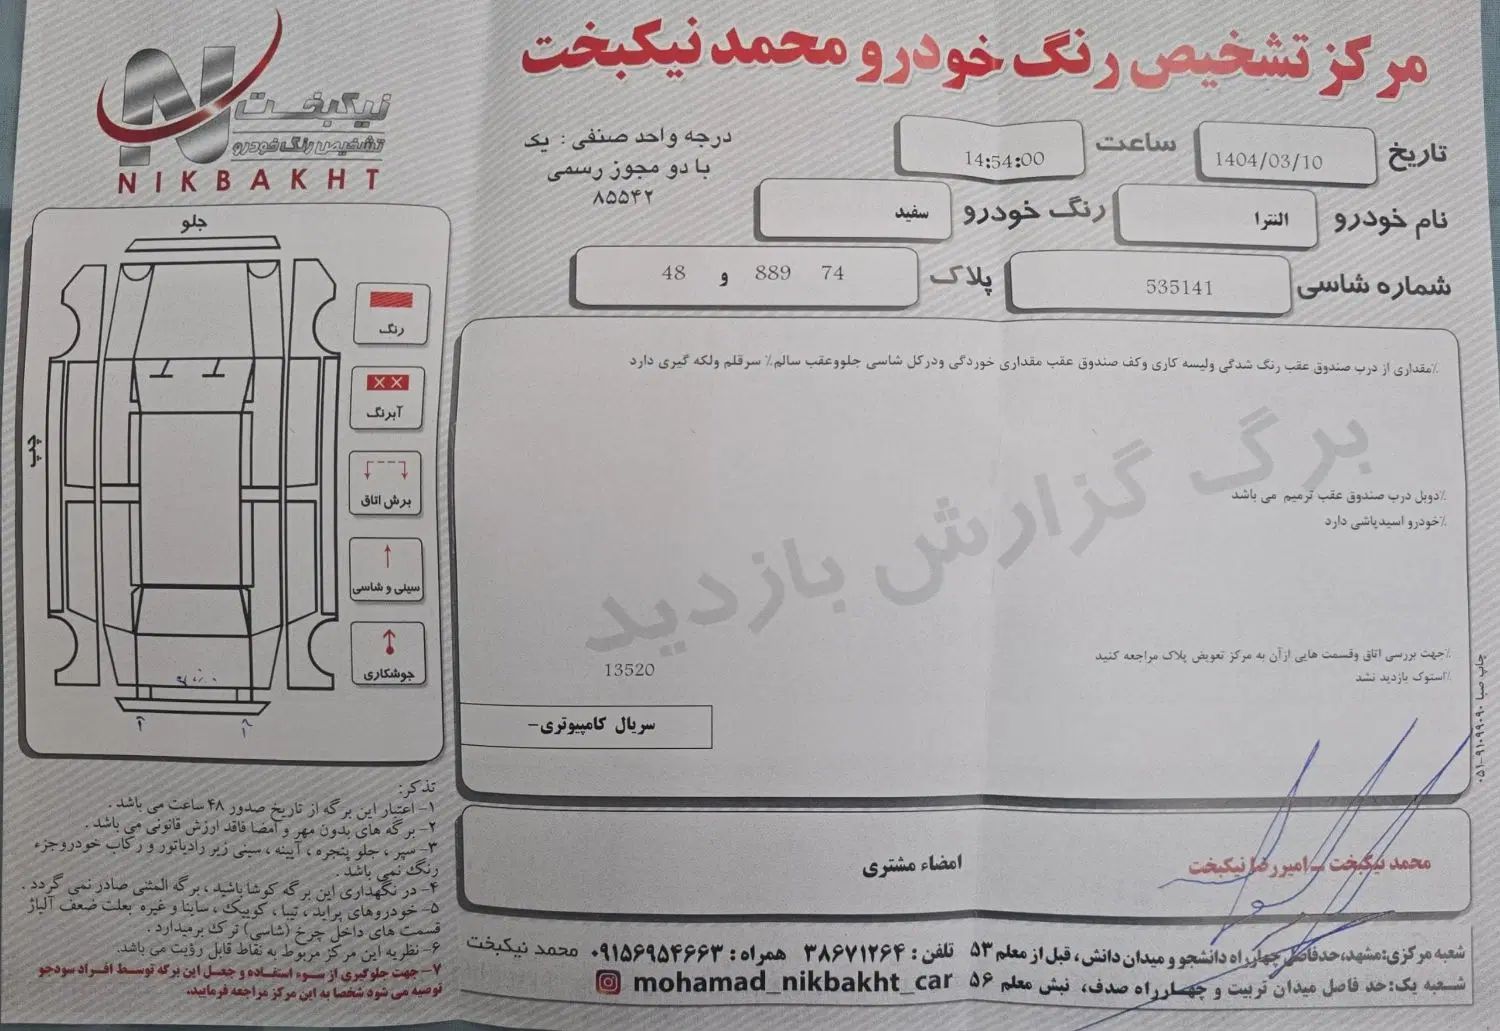 مرکز تشخیص رنگ خودرو محمد نیکبخت
نیکبخت
تشخیص رنگ خودرو
NIKBAKHT
درجه واحد صنفی : یک
با دو مجوز رسمی
۸۵۵۴۲
تاریخ 1404/03/10
ساعت 14:54:00
نام خودرو النترا
رنگ خودرو سفید
شماره شاسی 535141
پلاک 74 889 و 48
جلو
چپ
رنگ
آبرنگ
برش اتاق
سینی و شاسی
جوشکاری
٪مقداری از درب صندوق عقب رنگ شدگی ولیسه کاری وکف صندوق عقب مقداری خوردگی ودرکل شاسی جلووعقب سالم٪ سرقلم ولکه گیری دارد
برگ گزارش بازدید
٪دوبل درب صندوق عقب ترمیم می باشد
٪خودرو اسیدپاشی دارد
٪جهت بررسی اتاق وقسمت هایی ازآن به مرکز تعویض پلاک مراجعه کنید
٪استوک بازدید نشد
13520
سریال کامپیوتری-
چاپ صبا ۹۱۰۹۹۰۹۰-۰۵۱
محمد نیکبخت - امیررضا نیکبخت
امضاء مشتری
تذکر:
۱- اعتبار این برگه از تاریخ صدور ۴۸ ساعت می باشد .
۲- برگه های بدون مهر و امضا فاقد ارزش قانونی می باشد .
۳- سپر ، جلو پنجره ، آیینه ، سینی زیر رادیاتور و رکاب خودروجزء
رنگ نمی باشد .
۴- در نگهداری این برگه کوشا باشید ، برگه المثنی صادر نمی گردد .
۵- خودروهای پراید ، تیبا ، کوییک ، ساینا و غیره بعلت ضعف آلیاژ
قسمت های داخل چرخ (شاسی) ترک برمیدارد .
۶- نظریه این مرکز مربوط به نقاط قابل رؤیت می باشد.
۷- جهت جلوگیری از سوء استفاده و جعل این برگه توسط افراد سودجو
توصیه می شود شخصا به این مرکز مراجعه فرمایید.
شعبه مرکزی:مشهد،حدفاصل چهارراه دانشجو و میدان دانش ، قبل از معلم ۵۳ تلفن : ۳۸۶۷۱۲۶۴ همراه : ۰۹۱۵۶۹۵۴۶۶۳ محمد نیکبخت
شعبه یک:حد فاصل میدان تربیت و چهارراه صدف، نبش معلم ۵۶ mohamad_nikbakht_car